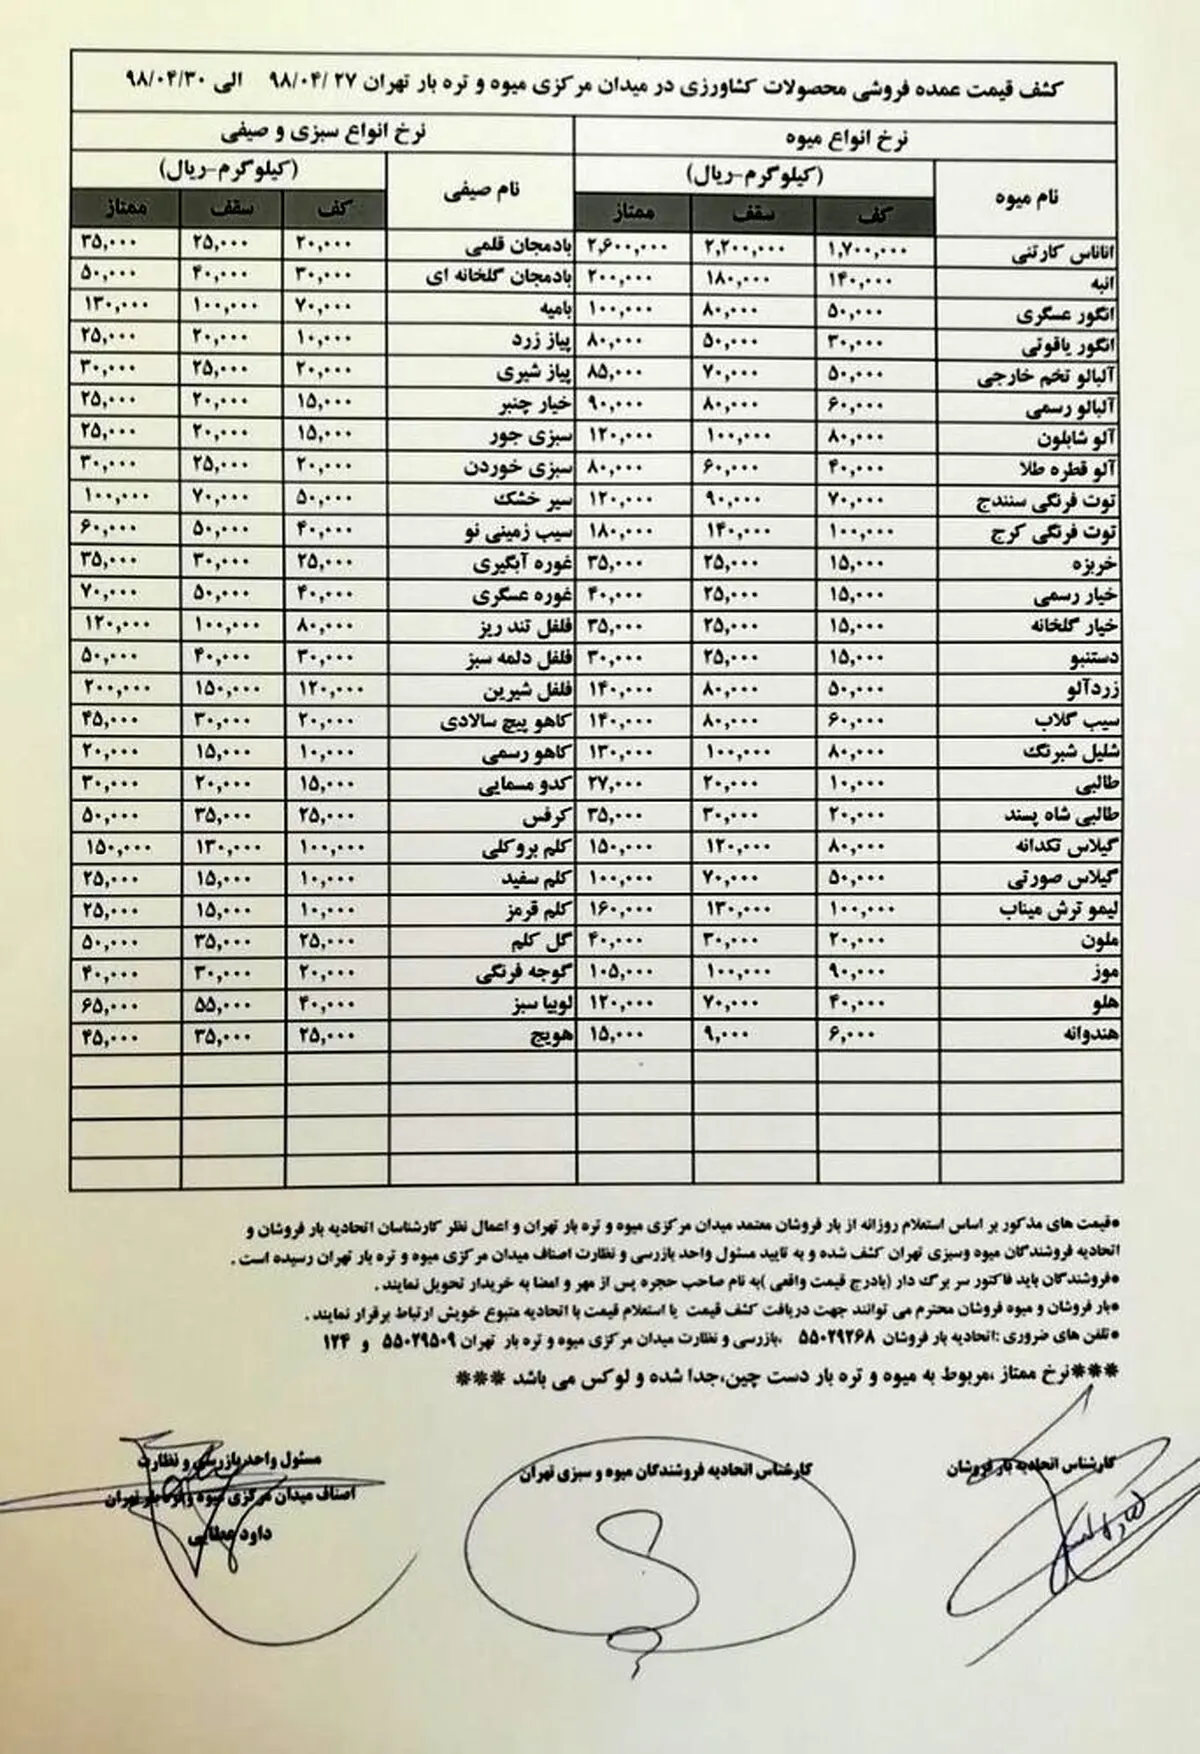 کشف قیمت عمده فروشی محصولات کشاورزی در میدان مرکزی میوه و تره بار تهران ۲۷ /۹۸/۰۴ الی ۹۸/۰۴/۳۰
نرخ انواع میوه نرخ انواع سبزی و صیفی
نام میوه (کیلوگرم-ریال) نام صیفی (کیلوگرم-ریال)
کف سقف ممتاز کف سقف ممتاز
اناناس کارتنی ۱,۷۰۰,۰۰۰ ۲,۲۰۰,۰۰۰ ۲,۶۰۰,۰۰۰ بادمجان قلمی ۲۰,۰۰۰ ۲۵,۰۰۰ ۳۵,۰۰۰
انبه ۱۴۰,۰۰۰ ۱۸۰,۰۰۰ ۲۰۰,۰۰۰ بادمجان گلخانه ای ۳۰,۰۰۰ ۴۰,۰۰۰ ۵۰,۰۰۰
انگور عسگری ۵۰,۰۰۰ ۸۰,۰۰۰ ۱۰۰,۰۰۰ بامیه ۷۰,۰۰۰ ۱۰۰,۰۰۰ ۱۳۰,۰۰۰
انگور یاقوتی ۳۰,۰۰۰ ۵۰,۰۰۰ ۸۰,۰۰۰ پیاز زرد ۱۰,۰۰۰ ۲۰,۰۰۰ ۲۵,۰۰۰
آلبالو تخم خارجی ۵۰,۰۰۰ ۷۰,۰۰۰ ۸۵,۰۰۰ پیاز شیری ۲۰,۰۰۰ ۲۵,۰۰۰ ۳۰,۰۰۰
آلبالو رسمی ۶۰,۰۰۰ ۸۰,۰۰۰ ۹۰,۰۰۰ خیار چنبر ۱۵,۰۰۰ ۲۰,۰۰۰ ۲۵,۰۰۰
آلو شابلون ۸۰,۰۰۰ ۱۰۰,۰۰۰ ۱۲۰,۰۰۰ سبزی جور ۱۵,۰۰۰ ۲۰,۰۰۰ ۲۵,۰۰۰
آلو قطره طلا ۴۰,۰۰۰ ۶۰,۰۰۰ ۸۰,۰۰۰ سبزی خوردن ۲۰,۰۰۰ ۲۵,۰۰۰ ۳۰,۰۰۰
توت فرنگی سنندج ۷۰,۰۰۰ ۹۰,۰۰۰ ۱۲۰,۰۰۰ سیر خشک ۵۰,۰۰۰ ۷۰,۰۰۰ ۱۰۰,۰۰۰
توت فرنگی کرج ۱۰۰,۰۰۰ ۱۴۰,۰۰۰ ۱۸۰,۰۰۰ سیب زمینی نو ۴۰,۰۰۰ ۵۰,۰۰۰ ۶۰,۰۰۰
خربزه ۱۵,۰۰۰ ۲۵,۰۰۰ ۳۵,۰۰۰ غوره آبگیری ۲۵,۰۰۰ ۳۰,۰۰۰ ۳۵,۰۰۰
خیار رسمی ۱۵,۰۰۰ ۲۵,۰۰۰ ۴۰,۰۰۰ غوره عسگری ۴۰,۰۰۰ ۵۰,۰۰۰ ۷۰,۰۰۰
خیار گلخانه ۱۵,۰۰۰ ۲۵,۰۰۰ ۳۵,۰۰۰ فلفل تند ریز ۸۰,۰۰۰ ۱۰۰,۰۰۰ ۱۲۰,۰۰۰
دستنبو ۱۵,۰۰۰ ۲۵,۰۰۰ ۳۰,۰۰۰ فلفل دلمه سبز ۳۰,۰۰۰ ۴۰,۰۰۰ ۵۰,۰۰۰
زردآلو ۵۰,۰۰۰ ۸۰,۰۰۰ ۱۴۰,۰۰۰ فلفل شیرین ۱۲۰,۰۰۰ ۱۵۰,۰۰۰ ۲۰۰,۰۰۰
سیب گلاب ۶۰,۰۰۰ ۸۰,۰۰۰ ۱۴۰,۰۰۰ کاهو پیچ سالادی ۲۰,۰۰۰ ۳۰,۰۰۰ ۴۵,۰۰۰
شلیل شبرنگ ۸۰,۰۰۰ ۱۰۰,۰۰۰ ۱۳۰,۰۰۰ کاهو رسمی ۱۰,۰۰۰ ۱۵,۰۰۰ ۲۰,۰۰۰
طالبی ۱۰,۰۰۰ ۲۰,۰۰۰ ۲۷,۰۰۰ کدو مسمایی ۱۵,۰۰۰ ۲۰,۰۰۰ ۳۰,۰۰۰
طالبی شاه پسند ۲۰,۰۰۰ ۳۰,۰۰۰ ۳۵,۰۰۰ کرفس ۲۵,۰۰۰ ۳۵,۰۰۰ ۵۰,۰۰۰
گیلاس تکدانه ۸۰,۰۰۰ ۱۲۰,۰۰۰ ۱۵۰,۰۰۰ کلم بروکلی ۱۰۰,۰۰۰ ۱۳۰,۰۰۰ ۱۵۰,۰۰۰
گیلاس صورتی ۵۰,۰۰۰ ۷۰,۰۰۰ ۱۰۰,۰۰۰ کلم سفید ۱۰,۰۰۰ ۱۵,۰۰۰ ۲۵,۰۰۰
لیمو ترش میناب ۱۰۰,۰۰۰ ۱۳۰,۰۰۰ ۱۶۰,۰۰۰ کلم قرمز ۱۰,۰۰۰ ۱۵,۰۰۰ ۲۵,۰۰۰
ملون ۲۰,۰۰۰ ۳۰,۰۰۰ ۴۰,۰۰۰ گل کلم ۲۵,۰۰۰ ۳۵,۰۰۰ ۵۰,۰۰۰
موز ۹۰,۰۰۰ ۱۰۰,۰۰۰ ۱۰۵,۰۰۰ گوجه فرنگی ۲۰,۰۰۰ ۳۰,۰۰۰ ۴۰,۰۰۰
هلو ۴۰,۰۰۰ ۷۰,۰۰۰ ۱۲۰,۰۰۰ لوبیا سبز ۴۰,۰۰۰ ۵۵,۰۰۰ ۶۵,۰۰۰
هندوانه ۶,۰۰۰ ۹,۰۰۰ ۱۵,۰۰۰ هویج ۲۵,۰۰۰ ۳۵,۰۰۰ ۴۵,۰۰۰
●قیمت های مذکور بر اساس استعلام روزانه از بار فروشان معتمد میدان مرکزی میوه و تره بار تهران و اعمال نظر کارشناسان اتحادیه بار فروشان و
اتحادیه فروشندگان میوه وسبزی تهران کشف شده و به تایید مسئول واحد بازرسی و نظارت اصناف میدان مرکزی میوه و تره بار تهران رسیده است .
●فروشندگان باید فاکتور سر برگ دار (بادرج قیمت واقعی )به نام صاحب حجره پس از مهر و امضا به خریدار تحویل نمایند .
●بار فروشان و میوه فروشان محترم می توانند جهت دریافت کشف قیمت یا استعلام قیمت با اتحادیه متبوع خویش ارتباط برقرار نمایند .
●تلفن های ضروری :اتحادیه بار فروشان ۵۵۰۲۹۲۶۸ ،بازرسی و نظارت میدان مرکزی میوه و تره بار تهران ۵۵۰۲۹۵۰۹ و ۱۲۴
***نرخ ممتاز ،مربوط به میوه و تره بار دست چین،جدا شده و لوکس می باشد ***
کارشناس اتحادیه بار فروشان کارشناس اتحادیه فروشندگان میوه و سبزی تهران مسئول واحد بازرسی و نظارت
اصناف میدان مرکزی میوه و تره بار تهران
داود عطایی